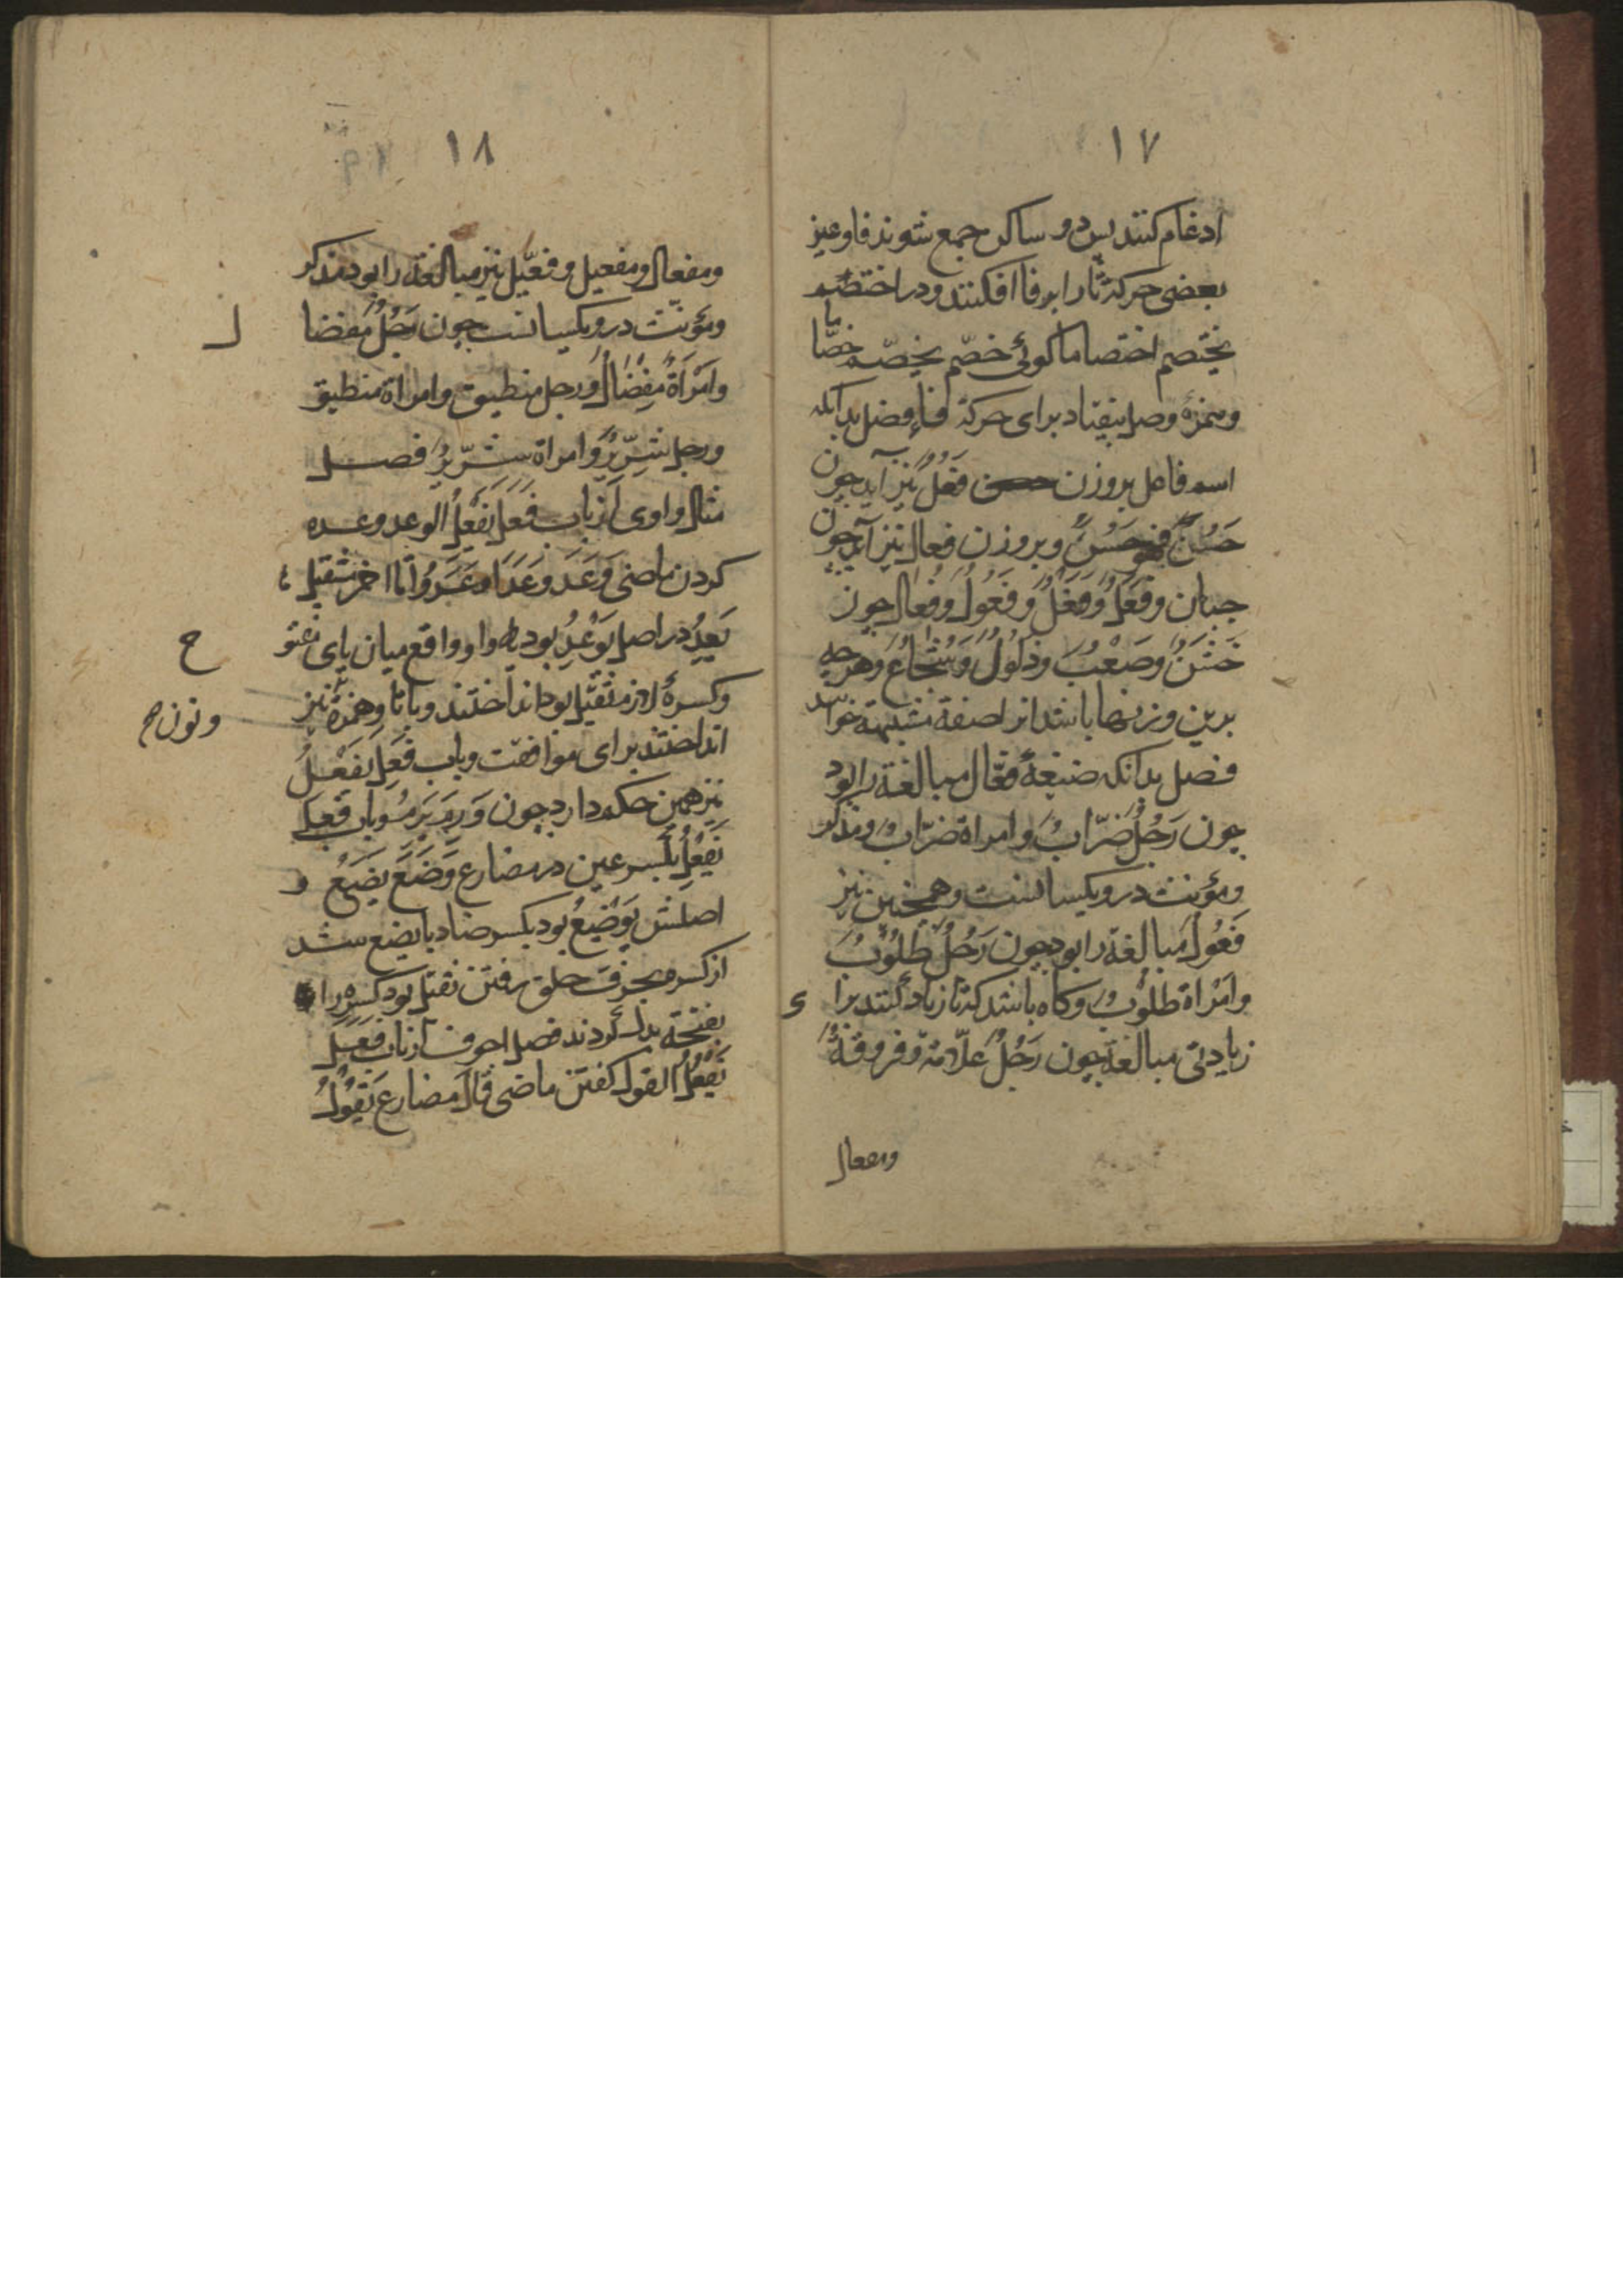 ١٧
ادغام کنند پس دو ساکن جمع شوند فا و عین
بعضی حرکة تا را بر فا افکنند و در اختصم
یختصم اختصاما کوئی خصّم یخصّم خصّاما
و همزهٔ وصل بیفتاد برای حرکة فاء فصل بدانکه
اسم فاعل بر وزن فَعَلٌ نیز آید چون
حَسُنَ فهو حَسَنٌ و بر وزن فعال نیز آید چون
جبان و فَعِلٌ وَفَعْلٌ وَفَعُولٌ وَفُعَالٌ چون
خَشِنٌ وصَعْبٌ وذَلُولٌ وَشُجَاعٌ وهرچه
بدین وزنها باشد انرا صفة مشبهة خوانند
فصل بدانکه صیغهٔ فعّال مبالغة را بود
چون رَجُلٌ ضَرّابٌ وامراة ضرّابٌ ومذکر
ومؤنث درو یکیسانست وهمچنین نیز
فَعُولٌ مبالغة را بود چون رَجُلٌ طَلُوبٌ
وامْرَاة طلوبٌ وکاه باشد که تا زیاده کنند برا ی
زیادتی مبالغة چون رَجُلٌ علّامة وفروقةٌ
ومفعال
١٨
ومفعال ومفعیل وفعّیل نیز مبالغة را بود مذکر
ومؤنث درو یکیسانست چون رَجُلٌ مِفضا ل
وامْرَاَةٌ مِفْضَالٌ ورجل منطیق وامراة منطیق
ورجل شِرّیرٌ وامراة شِرّیرٌ فصل
مثال واوی از باب فَعَلَ یَفْعِلُ الوعد وعده
کردن ماضی وَعَدَ وَعَدَا وَعَدُوا تا اخر مستقبل
یَعِدُ در اصل یَوْعِدُ بود واو واقع میان یای مفتو ح
وکسرهٔ لازم ثقیل بود انداختند وبا تا وهمزة ونون صح نیز
انداختند برای موافقت وباب فَعِلَ یَفْعِلُ
نیز همین حکم دارد چون وَرِمَ یَرِمُ وباب فَعَلَ
یَفْعِلُ بکسر عین در مضارع وَضَعَ یَضَعُ و
اصلش یَوْضِعُ بود بکسر ضاد یا یضع شد
از کسره بحرف حلق رفتن ثقیل بود کسره را
بفتحة بدل کردند فصل اجوف از باب فَعَلَ
یَفْعُلُ القول کفتن ماضی قال مضارع یَقُولُ